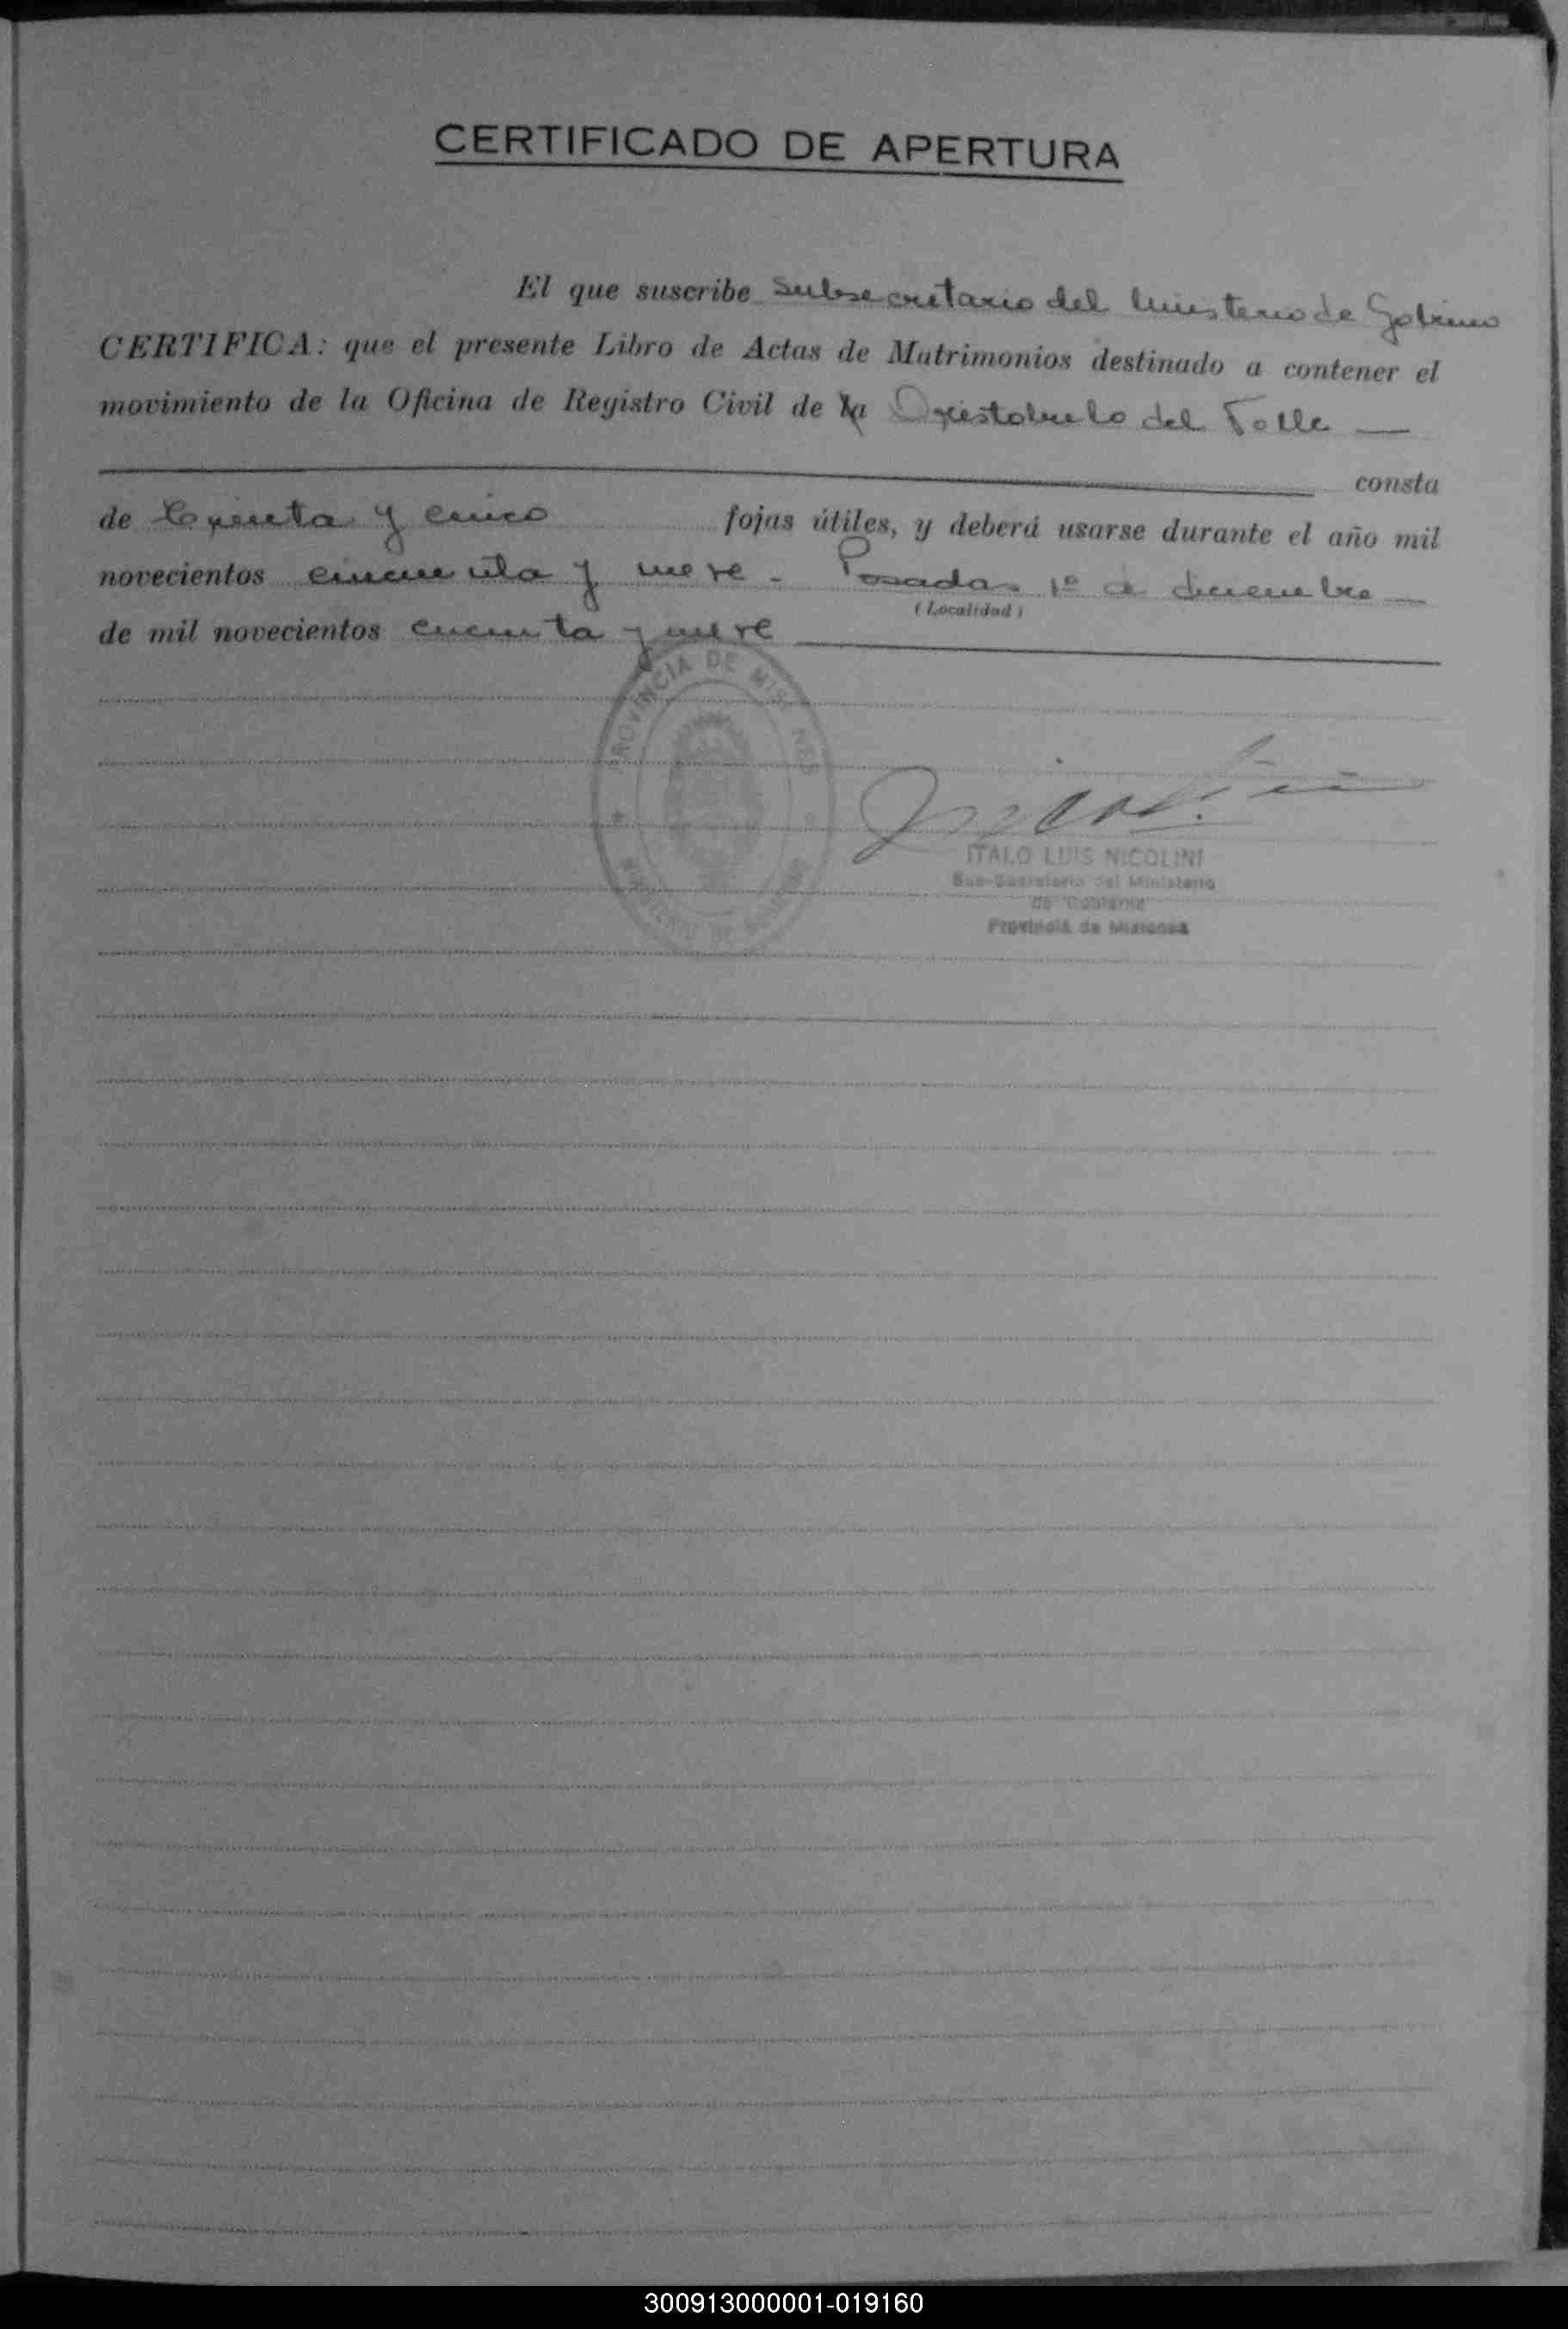 CERTIFICADO DE APERTURA
El que suscribe Subsecretario del Ministerio de Gobierno
CERTIFICA: que el presente Libro de Actas de Matrimonios destinado a contener el
movimiento de la Oficina de Registro Civil de la Aristobulo del Valle
consta
de treinta y cinco fojas útiles, y deberá usarse durante el año mil
novecientos cincuenta y nueve - Posadas 1º de diciembre
(Localidad)
de mil novecientos cincuenta y nueve
PROVINCIA DE MISIONES
MINISTERIO DE
ITALO LUIS NICOLINI
Sub-Secretario del Ministerio
de Gobierno
Provincia de Misiones
300913000001-019160